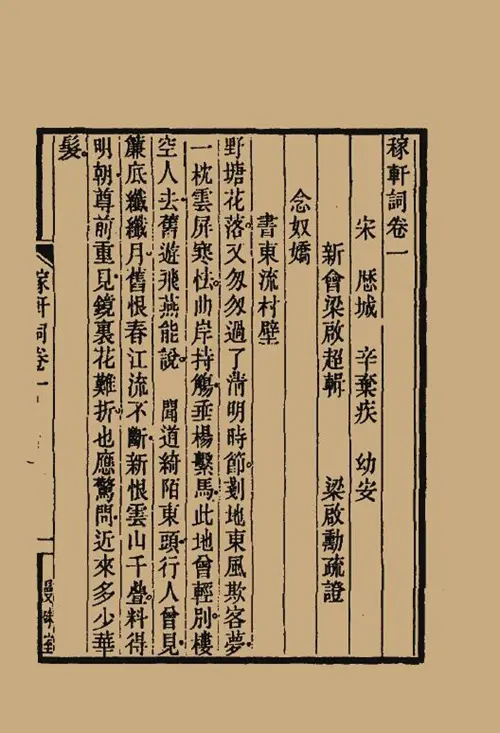 稼軒詞卷一
宋 厯城 辛棄疾 幼安
新會梁啟超輯 梁啟勳疏證
念奴嬌
書東流村壁
野塘花落。又匆匆過了清明時節。剗地東風欺客夢。
一枕雲屏寒怯。曲岸持觴。垂楊繫馬。此地曾輕別。樓
空人去。舊遊飛燕能說。 聞道綺陌東頭。行人曾見。
簾底纖纖月。舊恨春江流不斷。新恨雲山千疊。料得
明朝尊前重見。鏡裏花難折。也應驚問。近來多少華
髮。
稼軒詞卷一
一
曼殊室